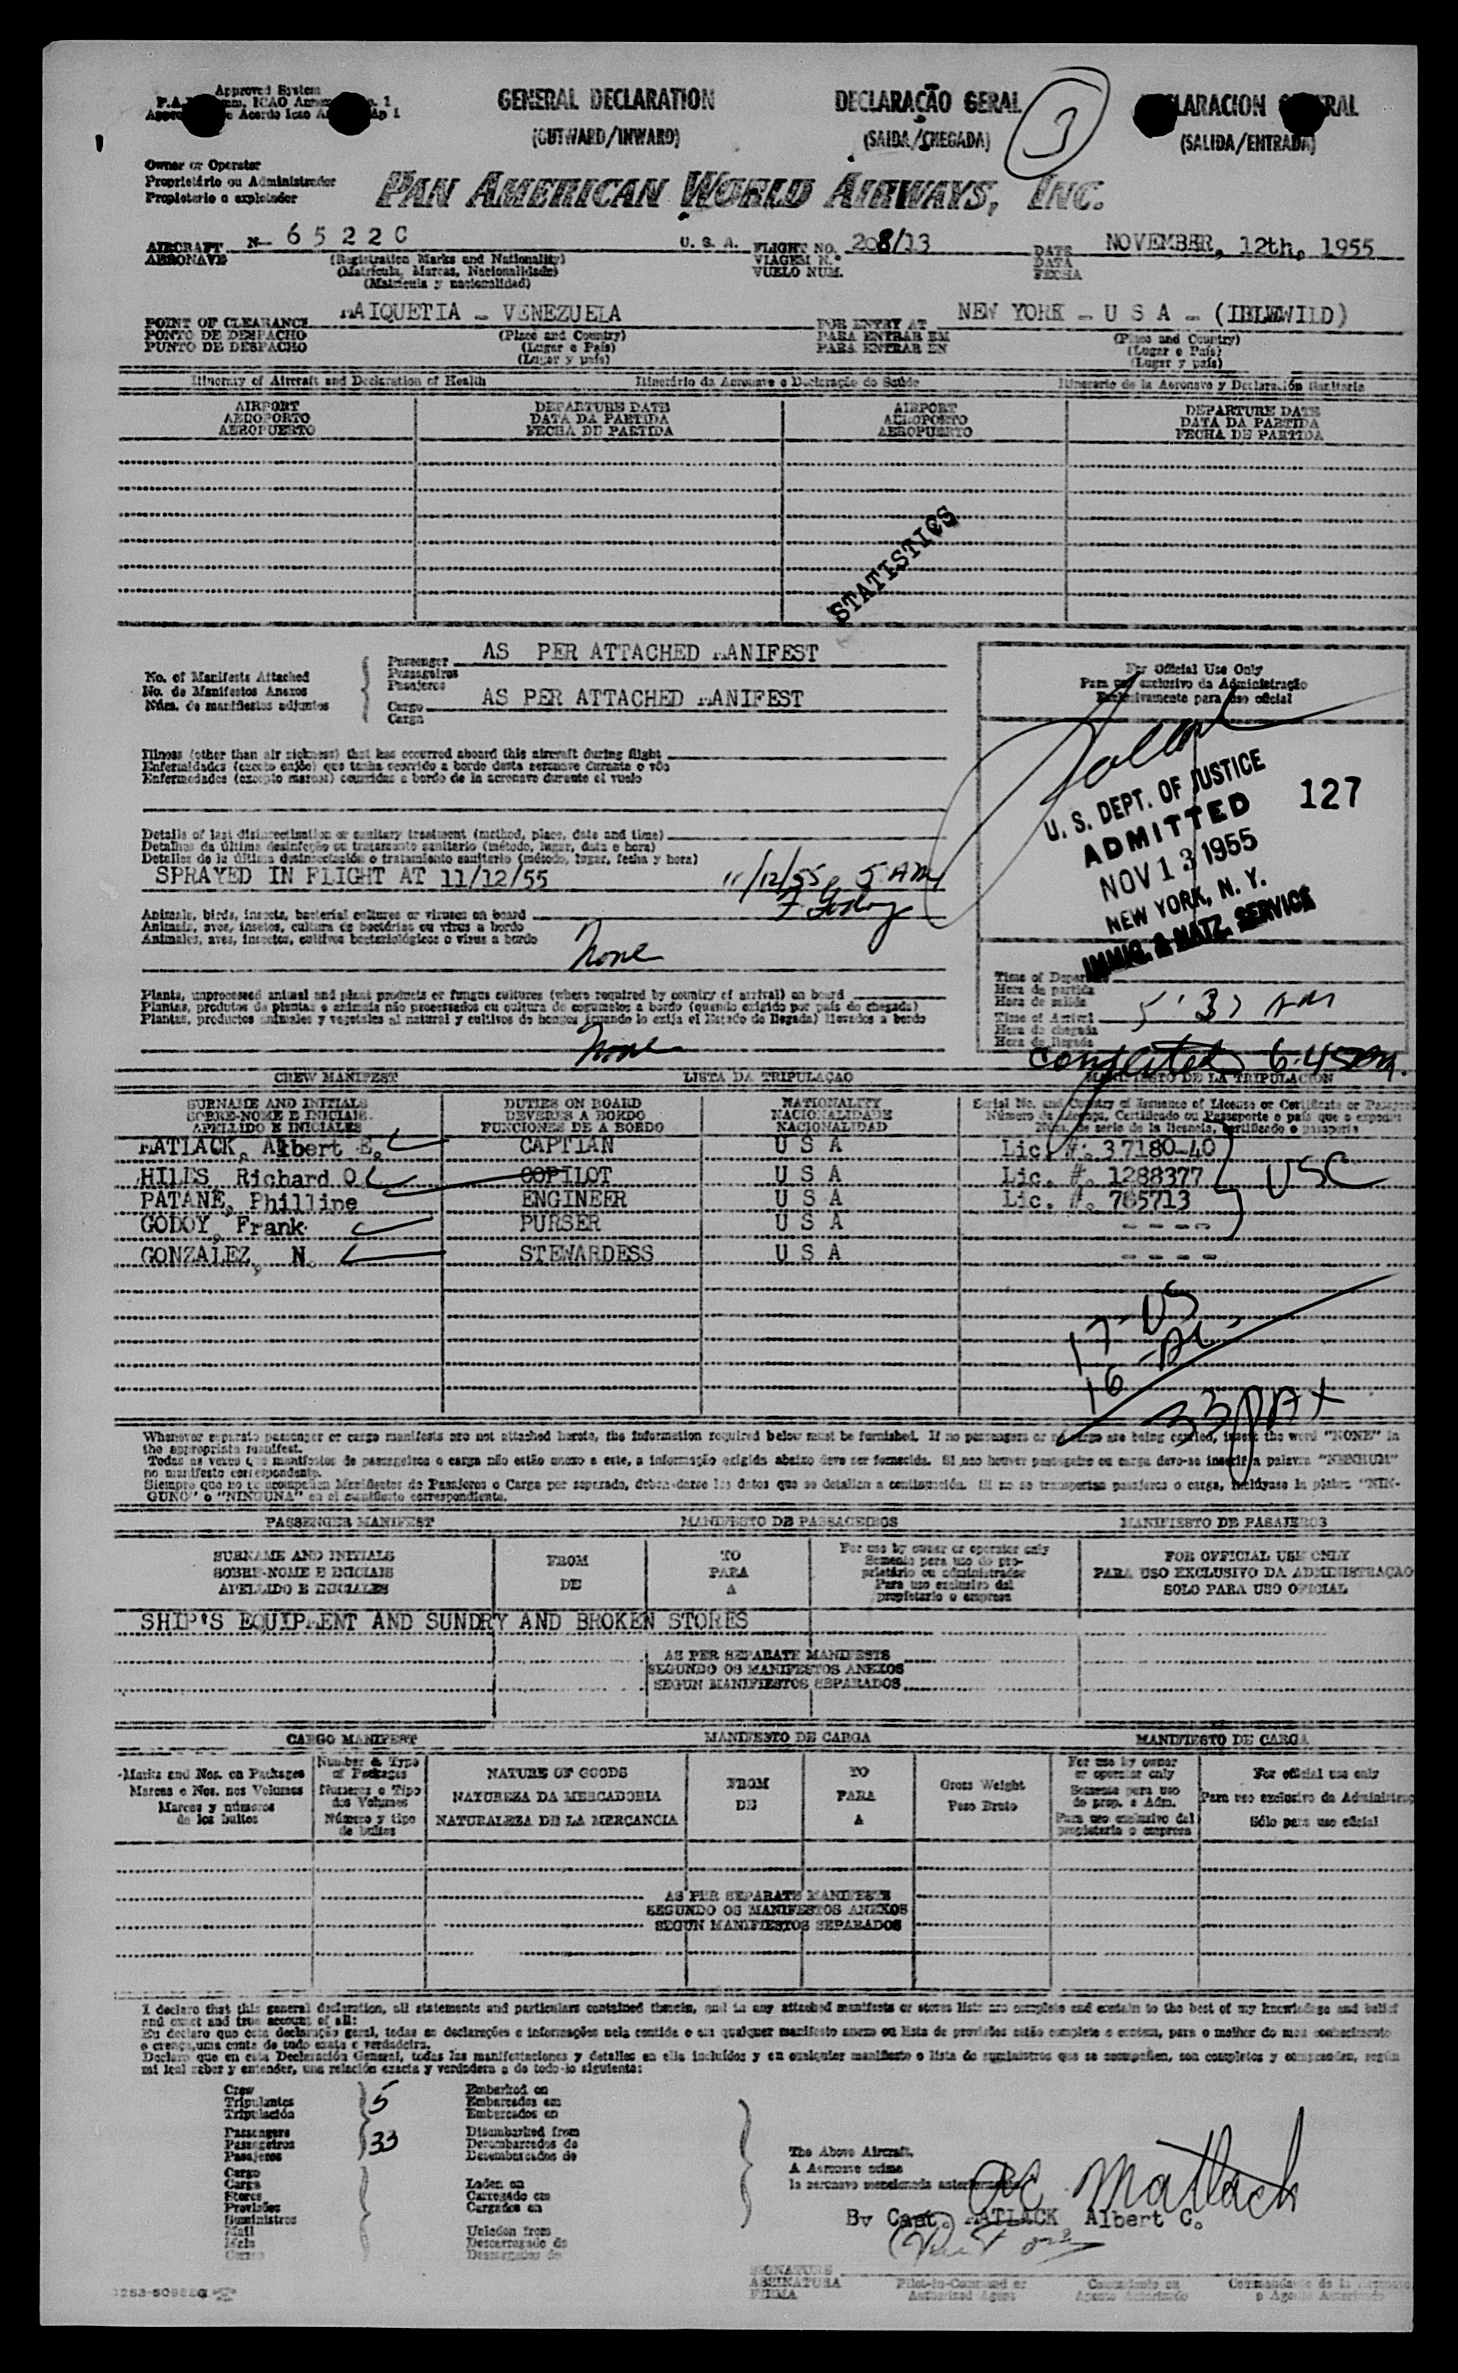 Approved System
GENERAL DECLARATION DECLARAÇÃO GERAL
(OUTWARD/INWARD) (SAIDA/CHEGADA) (SALIDA/ENTRADA)
3
Owner or Operator
Proprietário ou Administrador
Propietario o explotador
PAN AMERICAN WORLD AIRWAYS, INC.
AIRCRAFT N- 6522C U. S. A. FLIGHT NO. 208/13 DATE NOVEMBER, 12th, 1955
AERONAVE (Registration Marks and Nationality) VIAGEM N.º DATA
(Matrícula, Marcas, Nacionalidade) VUELO NUM. FECHA
(Matrícula y nacionalidad)
POINT OF CLEARANCE MAIQUETIA - VENEZUELA FOR ENTRY AT NEW YORK - U S A - (IDLEWILD)
PONTO DE DESPACHO (Place and Country) PARA ENTRAR EM (Place and Country)
PUNTO DE DESPACHO (Lugar e País) PARA ENTRAR EN (Lugar e País)
(Lugar y país) (Lugar y país)
Itinerary of Aircraft and Declaration of Health Itinerário da Aeronave e Declaração de Saúde Itinerario de la Aeronave y Declaración Sanitaria
AIRPORT DEPARTURE DATE AIRPORT DEPARTURE DATE
AEROPORTO DATA DA PARTIDA AEROPORTO DATA DA PARTIDA
AEROPUERTO FECHA DE PARTIDA AEROPUERTO FECHA DE PARTIDA
STATISTICS
No. of Manifests Attached
No. de Manifestos Anexos
Núm. de manifiestos adjuntos
Passenger AS PER ATTACHED MANIFEST
Passageiros
Pasajeros
Cargo AS PER ATTACHED MANIFEST
Carga
For Official Use Only
Para uso exclusivo da Administração
Exclusivamente para uso oficial
Illness (other than air sickness) that has occurred aboard this aircraft during flight
Enfermidades (exceto enjôo) que tenha ocorrido a bordo desta aeronave durante o vôo
Enfermedades (excepto mareos) ocurridas a bordo de la aeronave durante el vuelo
U. S. DEPT. OF JUSTICE
ADMITTED
NOV 13 1955
NEW YORK, N. Y.
IMMIG. & NATZ. SERVICE
127
Details of last disinsectization or sanitary treatment (method, place, date and time)
Detalhes da última desinfeção ou tratamento sanitario (método, lugar, data e hora)
Detalles de la última desinsectación o tratamiento sanitario (método, lugar, fecha y hora)
SPRAYED IN FLIGHT AT 11/12/55 11/12/55, 5 AM
F Godoy
Animals, birds, insects, bacterial cultures or viruses on board
Animais, aves, insetos, cultura de bactérias ou virus a bordo
Animales, aves, insectos, cultivos bacteriológicos o virus a bordo
None
Plants, unprocessed animal and plant products or fungus cultures (where required by country of arrival) on board
Plantas, produtos de plantas e animais não processados ou cultura de cogumelos a bordo (quando exigido por país de chegada)
Plantas, productos animales y vegetales al natural y cultivos de hongos (cuando lo exija el Estado de llegada) llevados a bordo
None
Time of Departure
Hora de partida
Hora de salida
Time of Arrival 5:37 AM
Hora de chegada
Hora de llegada
Completed 6:45AM.
CREW MANIFEST LISTA DA TRIPULAÇAO MANIFIESTO DE LA TRIPULACION
SURNAME AND INITIALS DUTIES ON BOARD NATIONALITY
SOBRE-NOME E INICIAIS DEVERES A BORDO NACIONALIDADE
APELLIDO E INICIALES FUNCIONES DE A BORDO NACIONALIDAD
MATLACK, Albert E. CAPTIAN U S A Lic. #: 37180-40
HILLS Richard O COPILOT U S A Lic. #. 1288377
PATANE, Phillipe ENGINEER U S A Lic. #. 765713
GODOY, Frank PURSER U S A - - - -
GONZALEZ, N. STEWARDESS U S A - - - -
USC
17-US
16-AL
33 PAX
Whenever separate passenger or cargo manifests are not attached hereto, the information required below must be furnished. If no passengers or no cargo are being carried, insert the word "NONE" in
the appropriate manifest.
Todas as vezes que manifestos de passageiros o carga não estão anexo a este, a informação exigida abaixo deve ser fornecida. Si nao houver passageiro ou carga deve-se inserir a palavra "NENHUM"
no manifesto correspondente.
Siempre que no se acompañen Manifiestos de Pasajeros o Carga por separado, deben-darse los datos que se detallan a continuación. Si no se transportan pasajeros o carga, inclúyase la palabra "NIN-
GUNO" o "NINGUNA" en el manifiesto correspondiente.
PASSENGER MANIFEST MANIFESTO DE PASSAGEIROS MANIFIESTO DE PASAJEROS
SURNAME AND INITIALS FROM TO For use by owner or operator only FOR OFFICIAL USE ONLY
SOBRE-NOME E INICIAIS PARA Somente para uso do pro- PARA USO EXCLUSIVO DA ADMINISTRAÇAO
APELLIDO E INICIALES DE A prietário ou administrador SOLO PARA USO OFICIAL
Para uso exclusivo del
propietario o empresa
SHIP'S EQUIPMENT AND SUNDRY AND BROKEN STORES
AS PER SEPARATE MANIFESTS
SEGUNDO OS MANIFESTOS ANEXOS
SEGUN MANIFIESTOS SEPARADOS
CARGO MANIFEST MANIFESTO DE CARGA MANIFIESTO DE CARGA
Marks and Nos. on Packages Number & Type of Packages NATURE OF GOODS FROM TO Gross Weight For use by owner or operator only For official use only
Marcas e Nos. nos Volumes Numeros e Tipo dos Volumes NATUREZA DA MERCADORIA DE PARA Peso Bruto Somente para uso do prop. e Adm. Para uso exclusivo da Administraç
Marcas y números de los bultos Número y tipo de bultos NATURALEZA DE LA MERCANCIA A Para uso exclusivo del propietario o empresa Sólo para uso oficial
AS PER SEPARATE MANIFESTS
SEGUNDO OS MANIFESTOS ANEXOS
SEGUN MANIFIESTOS SEPARADOS
I declare that this general declaration, all statements and particulars contained therein, and in any attached manifests or stores lists are complete and contain to the best of my knowledge and belief
and exact and true account of all:
Eu declaro que esta declaração geral, todas as declarações e informações nela contida e em qualquer manifesto anexo ou lista de provisões estão completo e contem, para o melhor do meu conhecimento
e crença, uma conta de tudo exata e verdadeira.
Declaro que en esta Declaración General, todas las manifestaciones y detalles en ella incluídos y en cualquier manifiesto o lista de suministros que se acompañen, son completos y comprenden, según
mi leal saber y entender, una relación exacta y verdadera o de todo lo siguiente:
Crew 5 Embarked on
Tripulantes Embarcados em
Tripulación Embarcados en
Passengers 33 Disembarked from
Passageiros Desembarcados de
Pasajeros Desembarcados de
Cargo
Carga Laden on
Stores Carregado em
Provisões Cargados en
Suministros
Mail Unladen from
Mala Descarregado de
Correo Descargado de
The Above Aircraft.
A Aeronave acima
la aeronave mencionada anteriormente
AC Matlack
By Capt. MATLACK Albert C.
SIGNATURE
ASSINATURA Pilot-in-Command or Comandante ou
FIRMA Authorized Agent Agente Autorizado o Agente Autorizado